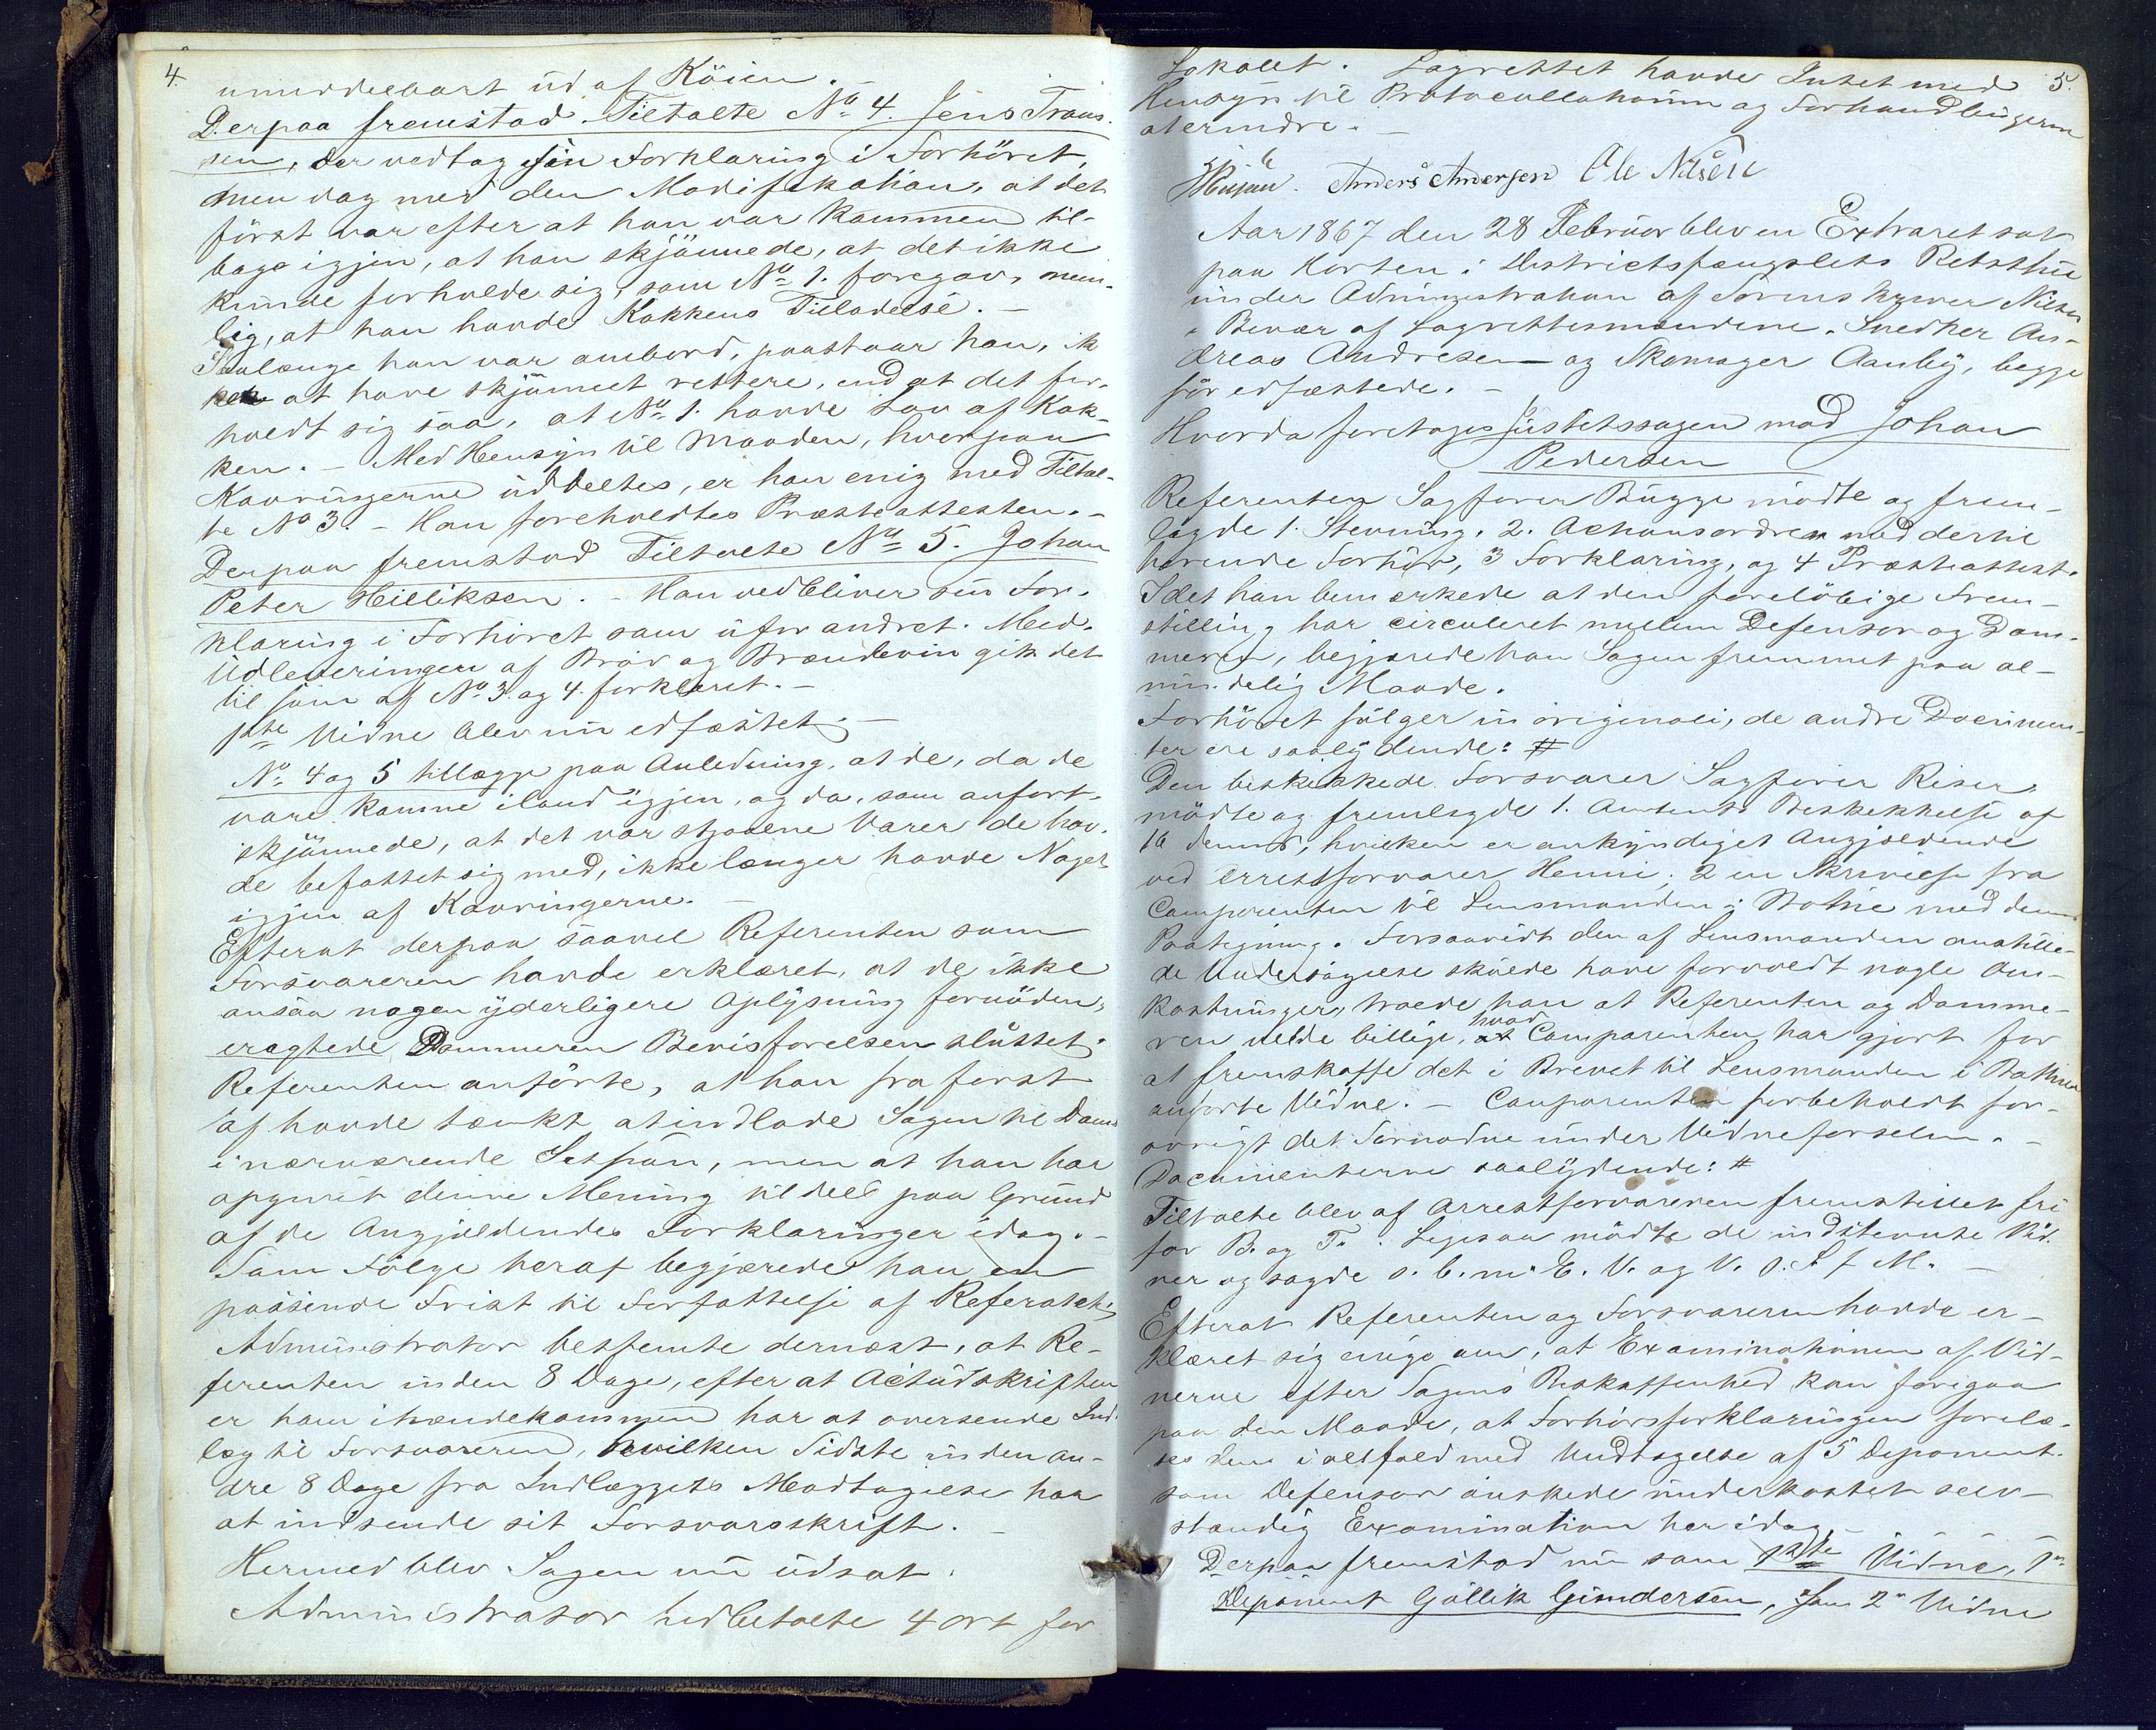 4.
umiddelbart ud af Köien. -
Derpaa fremstod Tiltalte No 4. Jens Frans-
sen, der vedtog sin Forklaring i Forhöret,
men dog med den Modifikation, at det
först var efter at han var kommen til-
bage igjen, at han skjönnede, at det ikke
kunde forholde sig, som No 1. foregav, nem-
lig, at han havde Kokkens Tilladelse. -
Saalænge han var ombord, paastaar han, ik
ke at have skjönnet rettere, end at det for-
holdt sig saa, at No 1. havde Lov af Kok-
ken. - Med Hensyn til Maaden, hvorpaa
Kavringerne uddeltes, er han enig med Tiltal-
te No 3. - Han foreholdtes Præsteattesten. -
Derpaa fremstod Tiltalte No 5. Johan
Peter Hilliksen. - Han vedbliver sin For-
klaring i Forhöret som uforandret. Med
Udleveringen af Bröd og Brændeviin gik det
til som af No 3. og 4. forklaret. -
1ste Vidne blev nu edfæstet. -
No 4 og 5 tillægge paa Anledning, at de, da de
vare komne iland igjen, og da, som anfört,
skjönnede, at det var stjaalne Varer de hav-
de befattet sig med, ikke længer havde Noget
igjen af Kavringerne. -
Efterat derpaa saavel Referenten som
Forsvareren havde erklæret, at de ikke
ansaa nogen yderligere Oplysning fornöden,
eragtede Dommeren Bevisförelsen sluttet.
Referenten anförte, at han fra först
af havde tænkt at indlade Sagen til Doms
i nærværende Session, men at han har
opgivet denne Mening tildels paa Grund
af de Angjældendes Forklaringer idag. -
Som Fölge heraf begjærede han en
passende Frist til Forfattelse af Referatet.
Administrator bestemte dernæst, at Re-
ferenten inden 8 Dage, efter at Actudskriften
er ham ihændekommen har at oversende Ind-
læg til Forsvareren, hvilken Sidste inden an-
dre 8 Dage fra Indlæggets Modtagelse har
at indsende sit Forsvarsskrift. -
Hermed blev Sagen nu udsat.
Administrator udbetalte 4 ort for
5.
Lokalet. Lagrettet havde Intet med
Hensyn til Protocollationen og Forhandlingerne
at erindre. -
Anders Andersen Ole Nilsen
Aar 1867 den 28 Februar blev en Extraret sat
paa Horten i Districtsfængslets Retsstue
under Administration af Sorenskriver Nilsen
i Overvær af Lagrettesmændene, Snedker An-
dreas Andresen og Skomager Aanby, begge
för edfæstede. -
Hvorda foretoges Justitssagen mod Johan
Pedersen
Referenten Sagförer Bugge mödte og frem-
lagde 1. Stevning. 2. Actionsordren med dertil
hörende Forhör, 3 Forklaring, og 4 Præsteattest.
Idet han bemærkede at den forelöbige Frem-
stilling har circuleret mellem Defensor og Dom-
meren, begjærede han Sagen fremmet paa al-
mindelig Maade.
Forhöret fölger in originali, de andre Documen-
ter ere saalydende: #
Den beskikkede Forsvarer Sagförer Riser
mödte og fremlagde 1. Amtets Beskikkelse af
16 dennes, hvilken er ankyndiget Angjældende
ved Arrestforvarer Henni; 2 en Skrivelse fra
Comparenten til Lensmanden i Botne med dennes
Paategning. Forsaavidt den af Lensmanden anstille-
de Undersögelse skulde have forvoldt nogle Om-
kostninger, troede han at Referenten og Domme-
ren vilde billige, hvad Comparenten har gjort for
at fremskaffe det i Brevet til Lensmanden i Bothne
anförte Vidne. - Comparenten forbeholdt for-
övrigt det Fornödne under Vidneförselen. -
Documenterne saalydende: #
Tiltalte blev af Arrestforvareren fremstillet fri
for B. og T. . Ligesaa mödte de indstevnte Vid-
ner og sagde s. b. m. E. V. og V. s. S. f M. -
Efterat Referenten og Forsvareren havde er-
klæret sig enige om, at Examinationen af Vid-
nerne efter Sagens Beskaffenhed kan foregaa
paa den Maade, at Forhörsforklaringen forelæ-
ses dem i altfald med Undtagelse af 5 Deponent.
som Defensor önskede underkastet selv-
stændig Examination her idag, -
Derpaa fremstod nu som 1ste Vidne, 1
Deponent Gullik Gundersen, som 2 Vidne